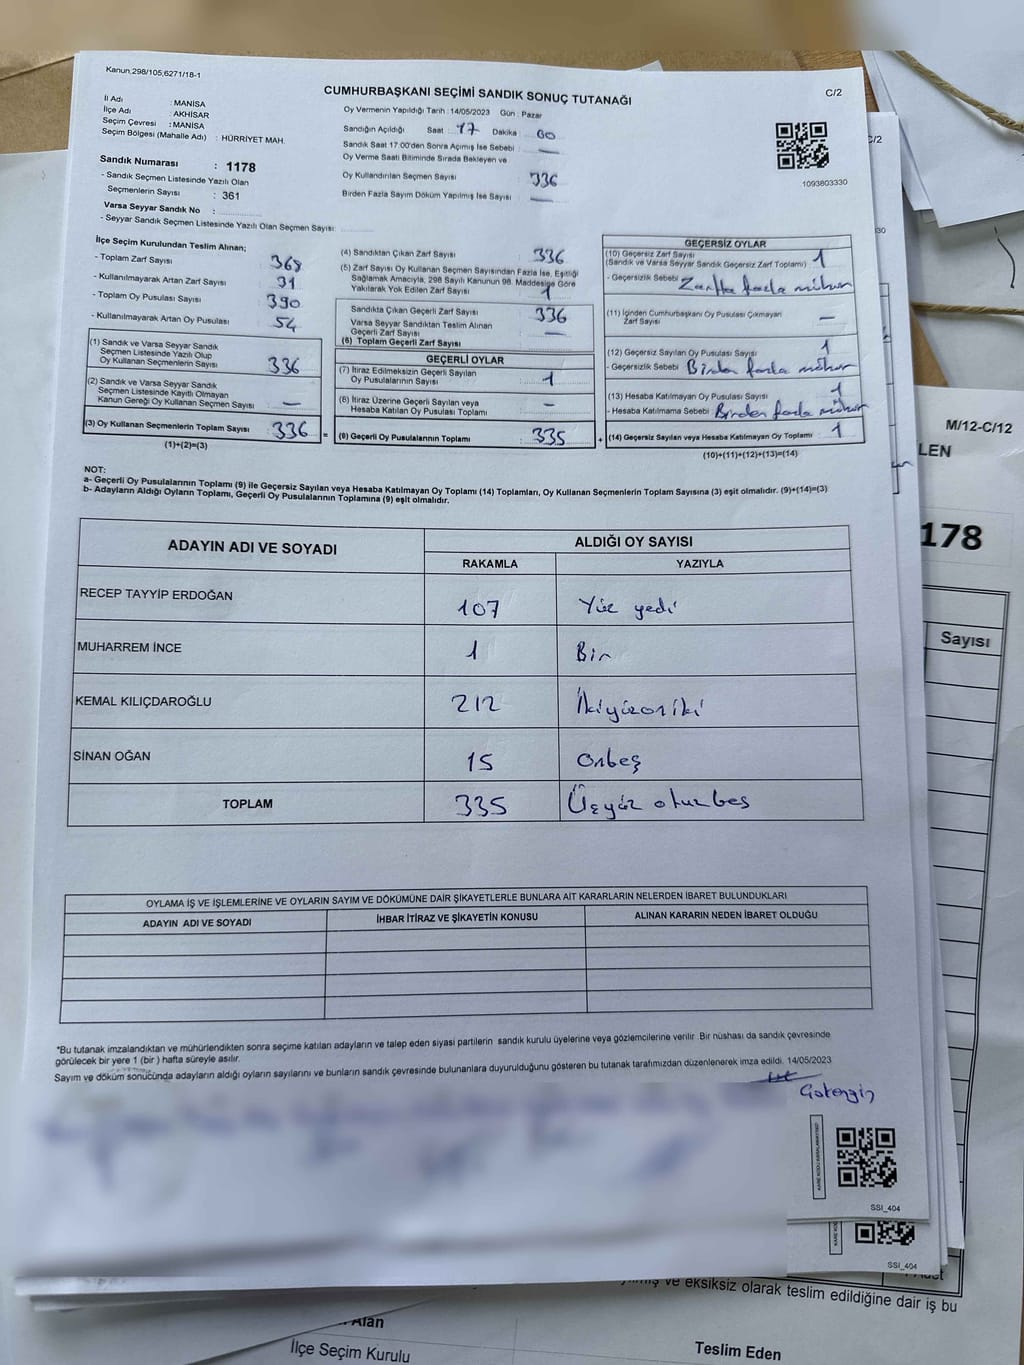 Kanun,298/105,6271/18-1
CUMHURBAŞKANI SEÇİMİ SANDIK SONUÇ TUTANAĞI
C/2
İl Adı : MANİSA
İlçe Adı : AKHİSAR
Seçim Çevresi : MANİSA
Seçim Bölgesi (Mahalle Adı) : HÜRRİYET MAH.
Sandık Numarası : 1178
- Sandık Seçmen Listesinde Yazılı Olan
Seçmenlerin Sayısı : 361
Varsa Seyyar Sandık No :
- Seyyar Sandık Seçmen Listesinde Yazılı Olan Seçmen Sayısı:
Oy Vermenin Yapıldığı Tarih : 14/05/2023 Gün : Pazar
Sandığın Açıldığı Saat : 17 Dakika : 00
Sandık Saat 17:00'den Sonra Açımış İse Sebebi : —
Oy Verme Saati Bitiminde Sırada Bekleyen ve
Oy Kullandırılan Seçmen Sayısı : 336
Birden Fazla Sayım Döküm Yapılmış İse Sayısı : —
1093803330
İlçe Seçim Kurulundan Teslim Alınan;
- Toplam Zarf Sayısı : 368
- Kullanılmayarak Artan Zarf Sayısı : 31
- Toplam Oy Pusulası Sayısı : 390
- Kullanılmayarak Artan Oy Pusulası : 54
(1) Sandık ve Varsa Seyyar Sandık
Seçmen Listesinde Yazılı Olup
Oy Kullanan Seçmenlerin Sayısı : 336
(2) Sandık ve Varsa Seyyar Sandık
Seçmen Listesinde Kayıtlı Olmayan
Kanun Gereği Oy Kullanan Seçmen Sayısı : —
(3) Oy Kullanan Seçmenlerin Toplam Sayısı : 336 =
(1)+(2)=(3)
(4) Sandıktan Çıkan Zarf Sayısı : 336
(5) Zarf Sayısı Oy Kullanan Seçmen Sayısından Fazla İse, Eşitliği
Sağlamak Amacıyla, 298 Sayılı Kanunun 98. Maddesine Göre
Yakılarak Yok Edilen Zarf Sayısı : 1
Sandıkta Çıkan Geçerli Zarf Sayısı : 336
Varsa Seyyar Sandıktan Teslim Alınan
Geçerli Zarf Sayısı : —
(6) Toplam Geçerli Zarf Sayısı :
GEÇERLİ OYLAR
(7) İtiraz Edilmeksizin Geçerli Sayılan
Oy Pusulalarının Sayısı : 1
(8) İtiraz Üzerine Geçerli Sayılan veya
Hesaba Katılan Oy Pusulası Toplamı : —
(9) Geçerli Oy Pusulalarının Toplamı : 335 +
GEÇERSİZ OYLAR
(10) Geçersiz Zarf Sayısı : 1
(Sandık ve Varsa Seyyar Sandık Geçersiz Zarf Toplamı)
- Geçersizlik Sebebi : Zarfta fazla mühür
(11) İçinden Cumhurbaşkanı Oy Pusulası Çıkmayan
Zarf Sayısı : —
(12) Geçersiz Sayılan Oy Pusulası Sayısı : 1
- Geçersizlik Sebebi : Birden fazla mühür
(13) Hesaba Katılmayan Oy Pusulası Sayısı : 1
- Hesaba Katılmama Sebebi : Birden fazla mühür
(14) Geçersiz Sayılan veya Hesaba Katılmayan Oy Toplamı : 1
(10)+(11)+(12)+(13)=(14)
NOT:
a- Geçerli Oy Pusulalarının Toplamı (9) ile Geçersiz Sayılan veya Hesaba Katılmayan Oy Toplamı (14) Toplamları, Oy Kullanan Seçmenlerin Toplam Sayısına (3) eşit olmalıdır. (9)+(14)=(3)
b- Adayların Aldığı Oyların Toplamı, Geçerli Oy Pusulalarının Toplamına (9) eşit olmalıdır.
ADAYIN ADI VE SOYADI
ALDIĞI OY SAYISI
RAKAMLA YAZIYLA
RECEP TAYYİP ERDOĞAN 107 Yüz yedi
MUHARREM İNCE 1 Bir
KEMAL KILIÇDAROĞLU 212 İkiyüzoniki
SİNAN OĞAN 15 Onbeş
TOPLAM 335 Üçyüz otuzbeş
OYLAMA İŞ VE İŞLEMLERİNE VE OYLARIN SAYIM VE DÖKÜMÜNE DAİR ŞİKAYETLERLE BUNLARA AİT KARARLARIN NELERDEN İBARET BULUNDUKLARI
ADAYIN ADI VE SOYADI İHBAR İTİRAZ VE ŞİKAYETİN KONUSU ALINAN KARARIN NEDEN İBARET OLDUĞU
*Bu tutanak imzalandıktan ve mühürlendikten sonra seçime katılan adayların ve talep eden siyasi partilerin sandık kurulu üyelerine veya gözlemcilerine verilir. Bir nüshası da sandık çevresinde
görülecek bir yere 1 (bir ) hafta süreyle asılır.
Sayım ve döküm sonucunda adayların aldığı oyların sayılarını ve bunların sandık çevresinde bulunanlara duyurulduğunu gösteren bu tutanak tarafımızdan düzenlenerek imza edildi. 14/05/2023
SSI_404
SSI_404
C/2
30
M/12-C/12
LEN
178
Sayısı
ve eksiksiz olarak teslim edildiğine dair iş bu
Alan
İlçe Seçim Kurulu
Teslim Eden